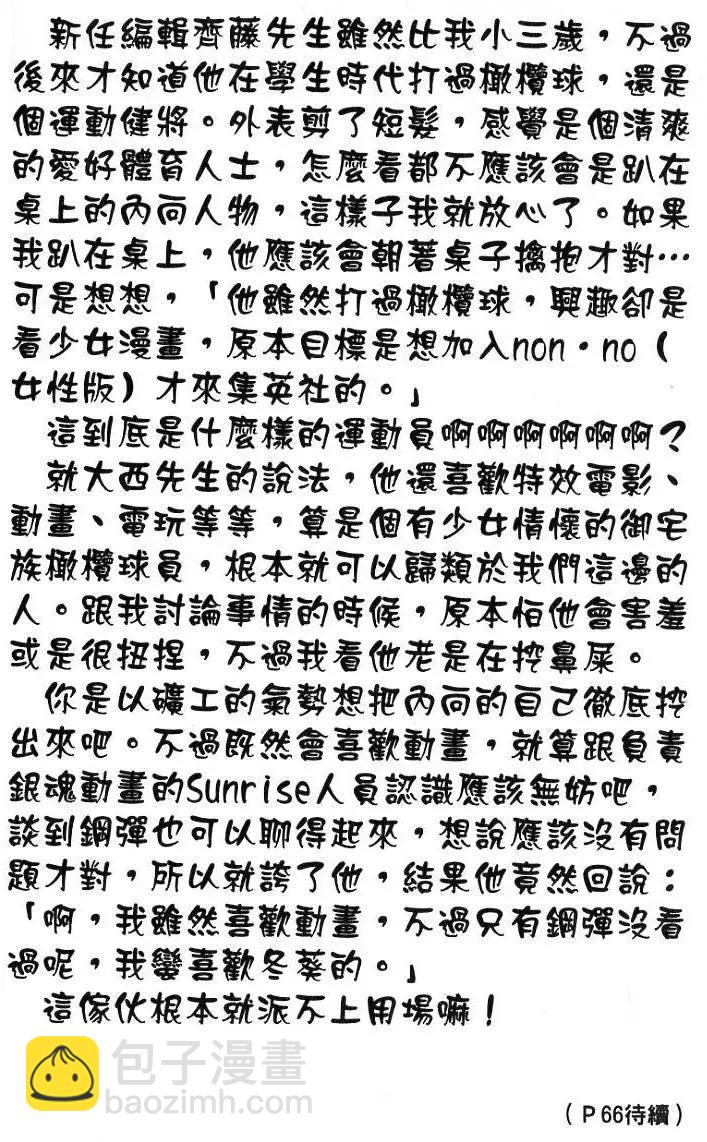 新任編輯齊藤先生雖然比我小三歲，不過
後來才知道他在學生時代打過橄欖球，還是
個運動健將。外表剪了短髮，感覺是個清爽
的愛好體育人士，怎麼看都不應該會是趴在
桌上的內向人物，這樣子我就放心了。如果
我趴在桌上，他應該會朝著桌子擒抱才對…
可是想想，「他雖然打過橄欖球，興趣卻是
看少女漫畫，原本目標是想加入non・no（
女性版）才來集英社的。」
這到底是什麼樣的運動員啊啊啊啊啊啊？
就大西先生的說法，他還喜歡特效電影、
動畫、電玩等等，算是個有少女情懷的御宅
族橄欖球員，根本就可以歸類於我們這邊的
人。跟我討論事情的時候，原本怕他會害羞
或是很扭捏，不過我看他老是在挖鼻屎。
你是以礦工的氣勢想把內向的自己徹底挖
出來吧。不過既然會喜歡動畫，就算跟負責
銀魂動畫的Sunrise人員認識應該無妨吧，
談到鋼彈也可以聊得起來，想說應該沒有問
題才對，所以就誇了他，結果他竟然回說：
「啊，我雖然喜歡動畫，不過只有鋼彈沒看
過呢，我蠻喜歡冬葵的。」
這傢伙根本就派不上用場嘛！
包子漫畫
baozimh.com
（P66待續）